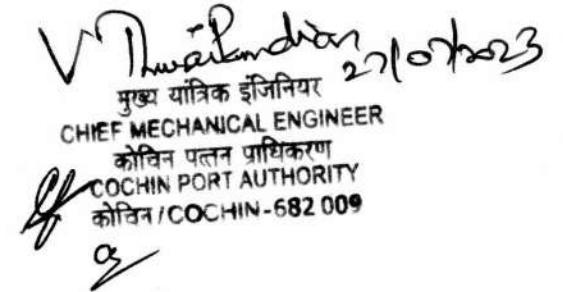 V Thuraipandian 27/07/2023
मुख्य यांत्रिक इंजिनियर
CHIEF MECHANICAL ENGINEER
कोचिन पत्तन प्राधिकरण
COCHIN PORT AUTHORITY
कोचिन/COCHIN-682 009